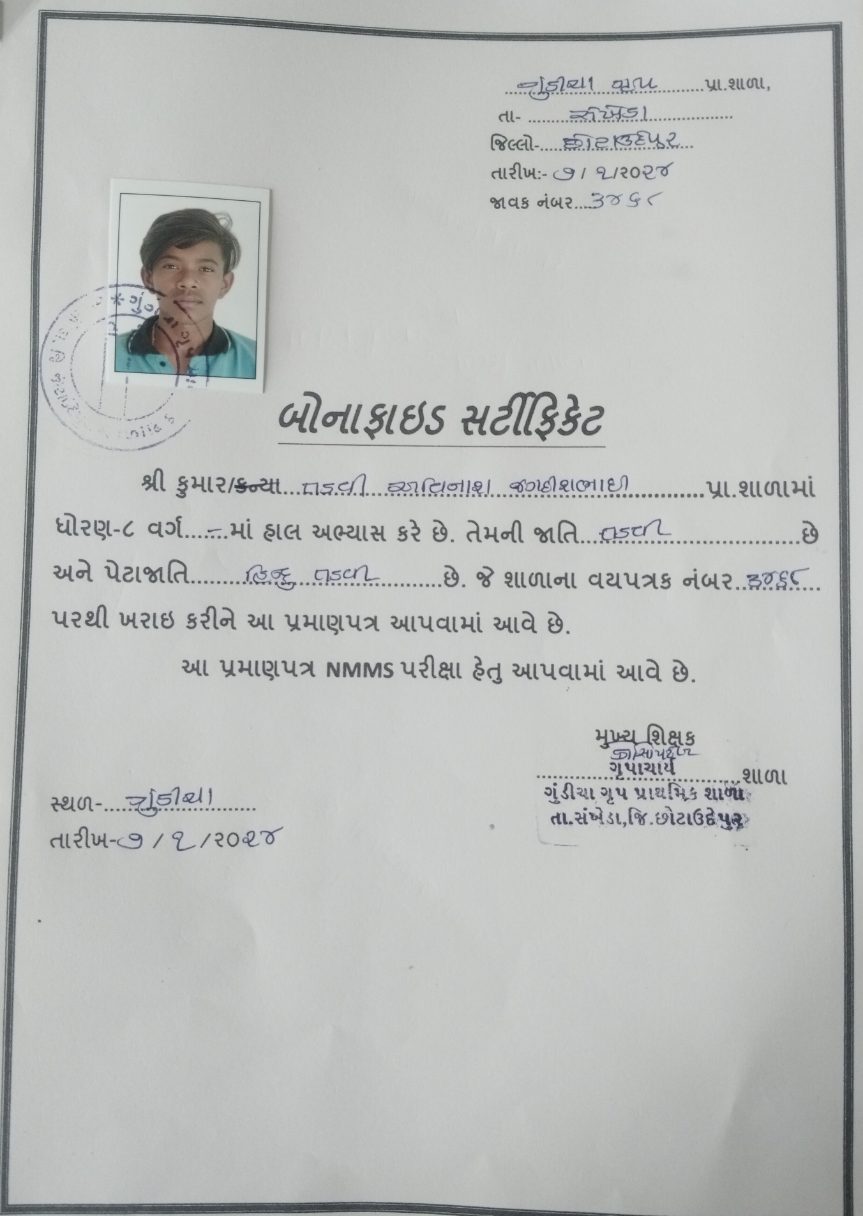 ગુંડીચા ગૃપ પ્રા.શાળા,
તા- સંખેડા
જિલ્લો- છોટાઉદેપુર
તારીખ:- ૭/ ૧/૨૦૨૪
જાવક નંબર....૩૪૬૮
બોનાફાઇડ સર્ટીફિકેટ
શ્રી કુમાર/કન્યા...તડવી અવિનાશ જગદીશભાઈ પ્રા.શાળામાં
ધોરણ-૮ વર્ગ.....-..માં હાલ અભ્યાસ કરે છે. તેમની જાતિ...તડવી...છે
અને પેટાજાતિ.......હિન્દુ તડવી.......છે. જે શાળાના વયપત્રક નંબર..૩૪૬૮
પરથી ખરાઇ કરીને આ પ્રમાણપત્ર આપવામાં આવે છે.
આ પ્રમાણપત્ર NMMS પરીક્ષા હેતુ આપવામાં આવે છે.
મુખ્ય શિક્ષક
ગૃપાચાર્ય
શાળા
ગુંડીચા ગૃપ પ્રાથમિક શાળા
તા.સંખેડા,જિ.છોટાઉદેપુર
સ્થળ-...ગુંડીચા
તારીખ-૭ / ૧ /૨૦૨૪